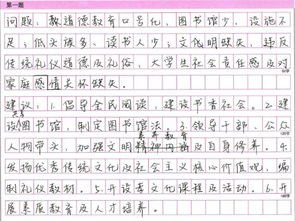 第一题
问题：教道德教育口号化，图书馆少，设施不
足；低头族多、读书人少；文化明缺失、违反
传统美德及礼俗，大学生社会责任感及对
家庭感情关怀缺失。
建议：1.倡导全民阅读，建设书香社会。2.建
设图书馆，制定图书馆法。3.领导干部、公众
素养教育
人物带头，加强文明精神内涵及自身修养。4.
发扬优秀传统文化及社会主义核心价值观，编
制礼仪教材。5.开设孝文化课程及活动。6.开
展素质教育及人才培养。